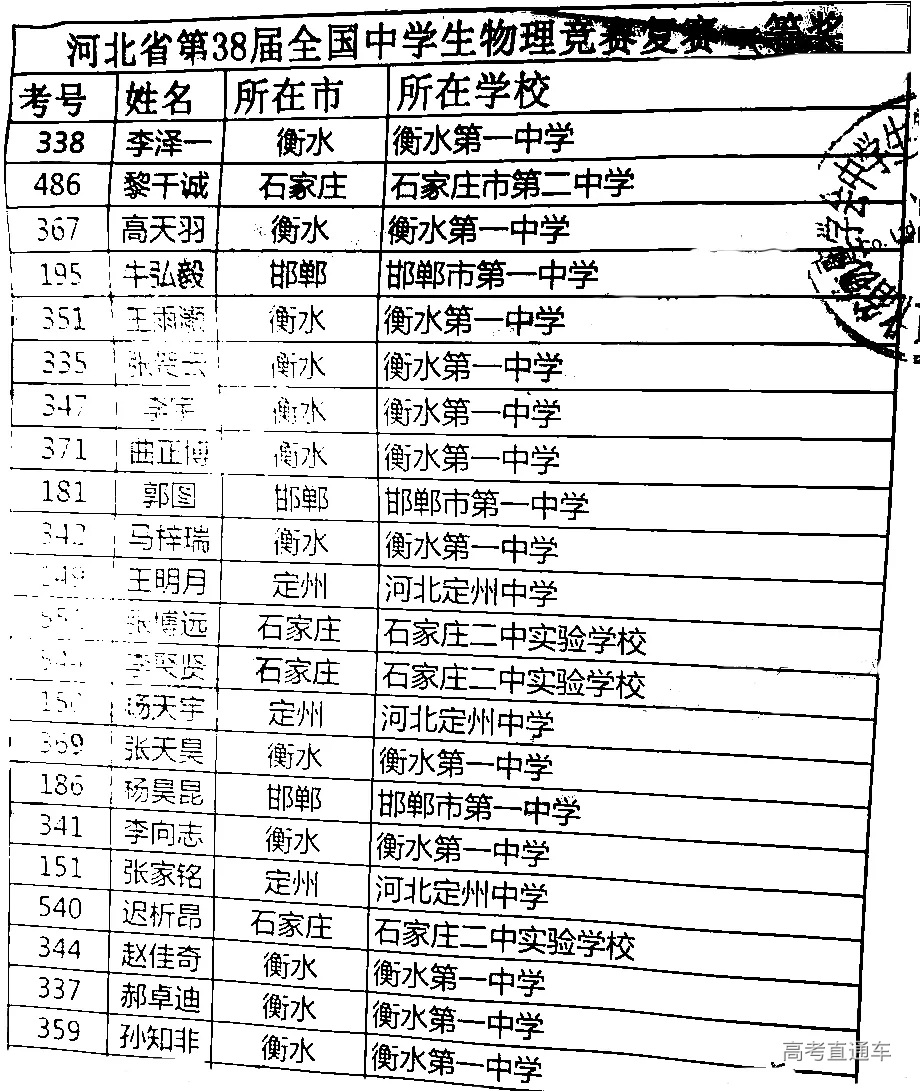 河北省第38届全国中学生物理竞赛复赛一等奖
考号 姓名 所在市 所在学校
338 李泽一 衡水 衡水第一中学
486 黎千诚 石家庄 石家庄市第二中学
367 高天羽 衡水 衡水第一中学
195 牛弘毅 邯郸 邯郸市第一中学
351 衡水 衡水第一中学
335 衡水 衡水第一中学
347 衡水 衡水第一中学
371 曲正博 衡水 衡水第一中学
181 郭图 邯郸 邯郸市第一中学
342 马梓瑞 衡水 衡水第一中学
王明月 定州 河北定州中学
张博远 石家庄 石家庄二中实验学校
石家庄 石家庄二中实验学校
杨天宇 定州 河北定州中学
369 张天昊 衡水 衡水第一中学
186 杨昊昆 邯郸 邯郸市第一中学
341 李向志 衡水 衡水第一中学
151 张家铭 定州 河北定州中学
540 迟析昂 石家庄 石家庄二中实验学校
344 赵佳奇 衡水 衡水第一中学
337 郝卓迪 衡水 衡水第一中学
359 孙知非 衡水 衡水第一中学
高考直通车